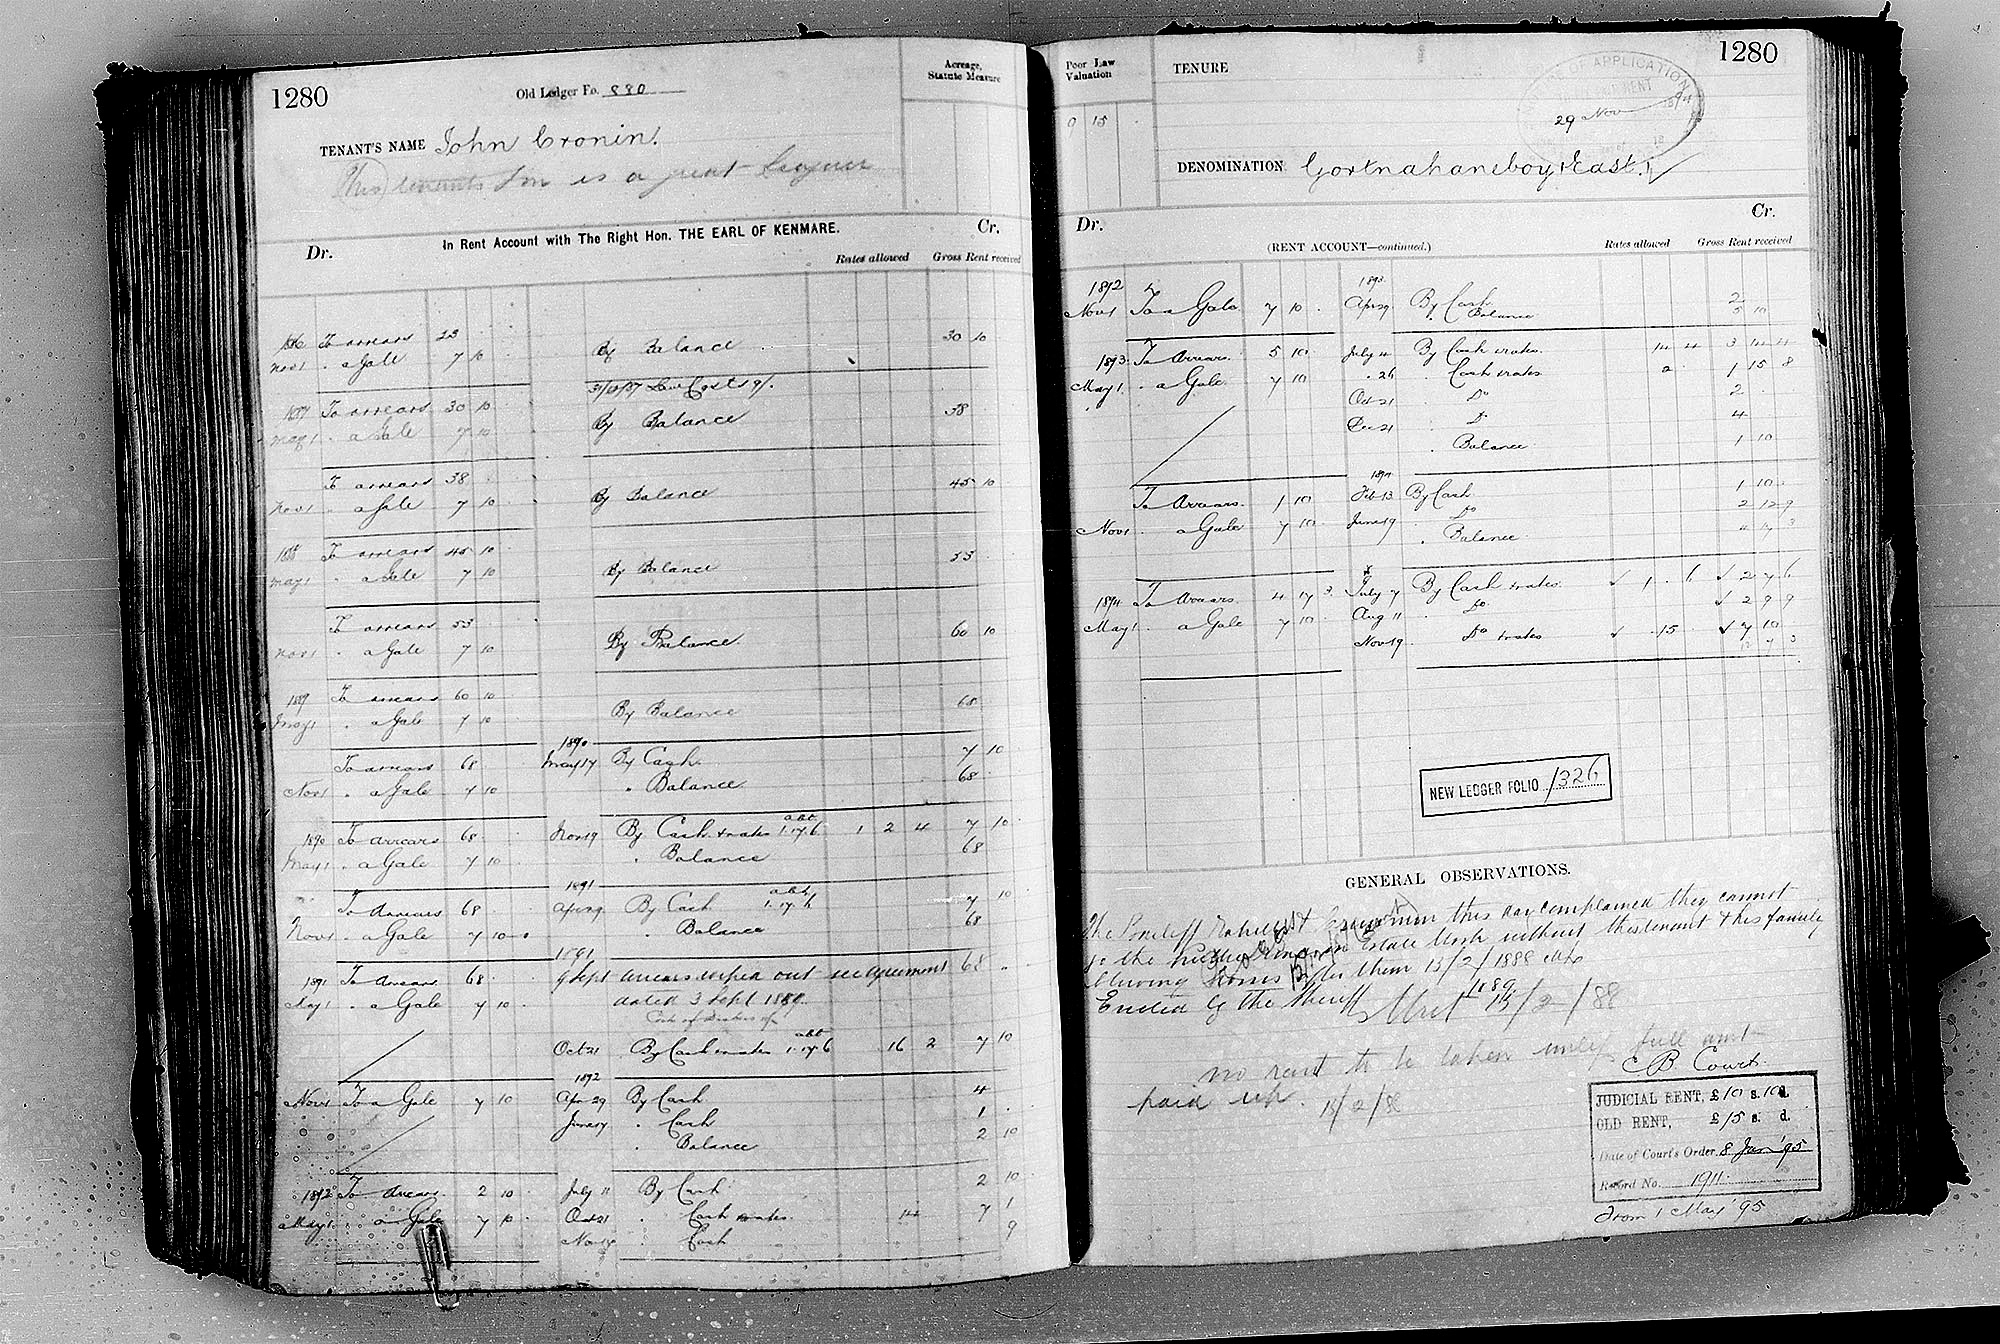 1280
Old Ledger Fo. 880
Acreage,
Statute Measure
TENANT'S NAME John Cronin.
This tenants son is a great Leaguer
Dr. In Rent Account with The Right Hon. THE EARL OF KENMARE. Cr.
Rates allowed Gross Rent received
1886 To arrears 23
Nov 1 " a Gale 7 10 By Balance 30 10
1887 To arrears 30 10
May 1 " a Gale 7 10 By Balance 38
To arrears 38
Nov 1 " a Gale 7 10 By Balance 45 10
1888 To arrears 45 10
May 1 " a Gale 7 10 By Balance 53
To arrears 53
Nov 1 " a Gale 7 10 By Balance 60 10
1889 To arrears 60 10
May 1 " a Gale 7 10 By Balance 68
1890
To arrears 68 May 17 By Cash 7 10
Nov 1 " a Gale 7 10 " Balance 68
1890 To arrears 68 Nov 19 By Cash & rates abt 1.17.6 1 2 4 7 10
May 1 " a Gale 7 10 " Balance 68
1891
To Arrears 68 Apr 29 By Cash abt 1.17.6 7 10
Nov 1 " a Gale 7 10 " Balance 68
1891
1891 To Arrears 68 9 Sept arrears wiped out see agreement 68
May 1 " a Gale 7 10 dated 3 Sept 1889
Oct 21 By Cash & rates abt 1.17.6 16 2 7 10
1892
Nov 1 To a Gale 7 10 Apr 29 By Cash 4
June 17 " Cash 1
" Balance 2 10
1892 To Arrears 2 10 July 11 By Cash 2 10
May 1 " a Gale 7 10 Oct 21 " Cash & rates 14 7 1
Nov 14 " Cash 9
Poor Law
Valuation
TENURE
1280
OF APPLICATION
RENT
29 Nov 1894
9 15
DENOMINATION Gortnahaneboy East
Dr. Cr.
(RENT ACCOUNT—continued.) Rates allowed Gross Rent received
1892 1893
Nov 1 To a Gale 7 10 Apr 29 By Cash 2
" Balance 5 10
1893 To Arrears 5 10 July 4 By Cash & rates 14 4 3 14 4
May 1 " a Gale 7 10 " 26 " Cash & rates 2 1 15 8
Oct 21 " Do 2
Dec 21 " Do 4
Balance 1 10
1894
To Arrears 1 10 Feb 13 By Cash 1 10
Nov 1 a Gale 7 10 June 19 " Do 2 12 9
" Balance 4 17 3
1894 To Arrears 4 17 3 July 7 By Cash & rates 1 6 2 7 6
May 1 a Gale 7 10 Aug 11 " Do 2 9 9
Nov 19 " Do & rates 15 7 10
NEW LEDGER FOLIO 1326
GENERAL OBSERVATIONS.
The Bailiff this day complained they cannot
go the on Estate Work without this tenant & his family
blowing Horns after them 13/2/1888
Evicted by the Sheriff 1889
15/2/88
no rent to be taken unless full amt
paid up. 15/2/88
C B. Court.
JUDICIAL RENT, £10 s. 10 d.
OLD RENT, £15 s. d.
Date of Court's Order 8 Jan '95
Record No. 1911
From 1 May '95